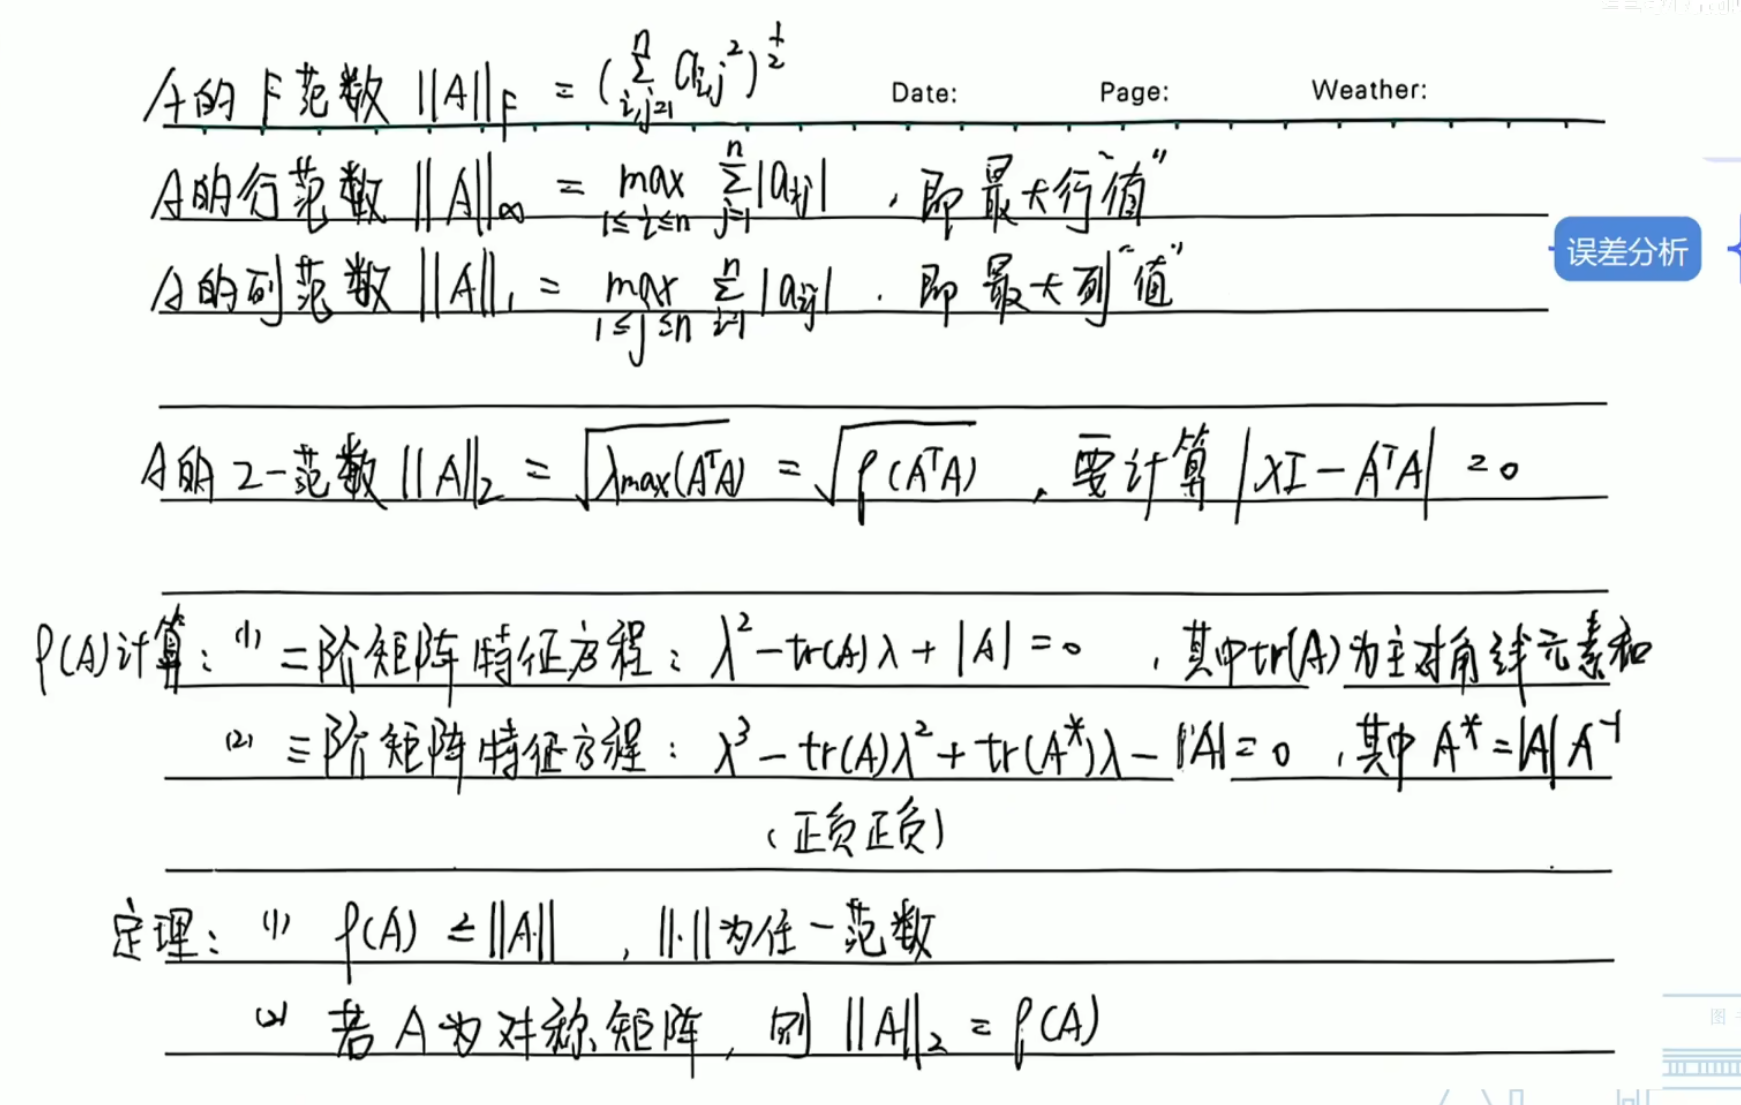 A的F范数 ||A||_F = (∑_{i,j=1}^{n} a_{ij}^2)^{1/2}
Date: Page: Weather:
A的行范数 ||A||_∞ = max_{1≤i≤n} ∑_{j=1}^{n} |a_{ij}| ,即最大行“值”
A的列范数 ||A||_1 = max_{1≤j≤n} ∑_{i=1}^{n} |a_{ij}| .即最大列“值”
误差分析
A的2-范数 ||A||_2 = √(λmax(A^T A)) = √(ρ(A^T A)) ,要计算 |λI - A^T A| = 0
ρ(A)计算: (1) 二阶矩阵特征方程: λ^2 - tr(A)λ + |A| = 0 ,其中tr(A)为主对角线元素和
(2) 三阶矩阵特征方程: λ^3 - tr(A)λ^2 + tr(A^*)λ - |A| = 0 ,其中 A^* = |A| A^{-1}
(正负正负)
定理: (1) ρ(A) ≤ ||A|| , ||·||为任一范数
(2) 若A为对称矩阵, 则 ||A||_2 = ρ(A)
图